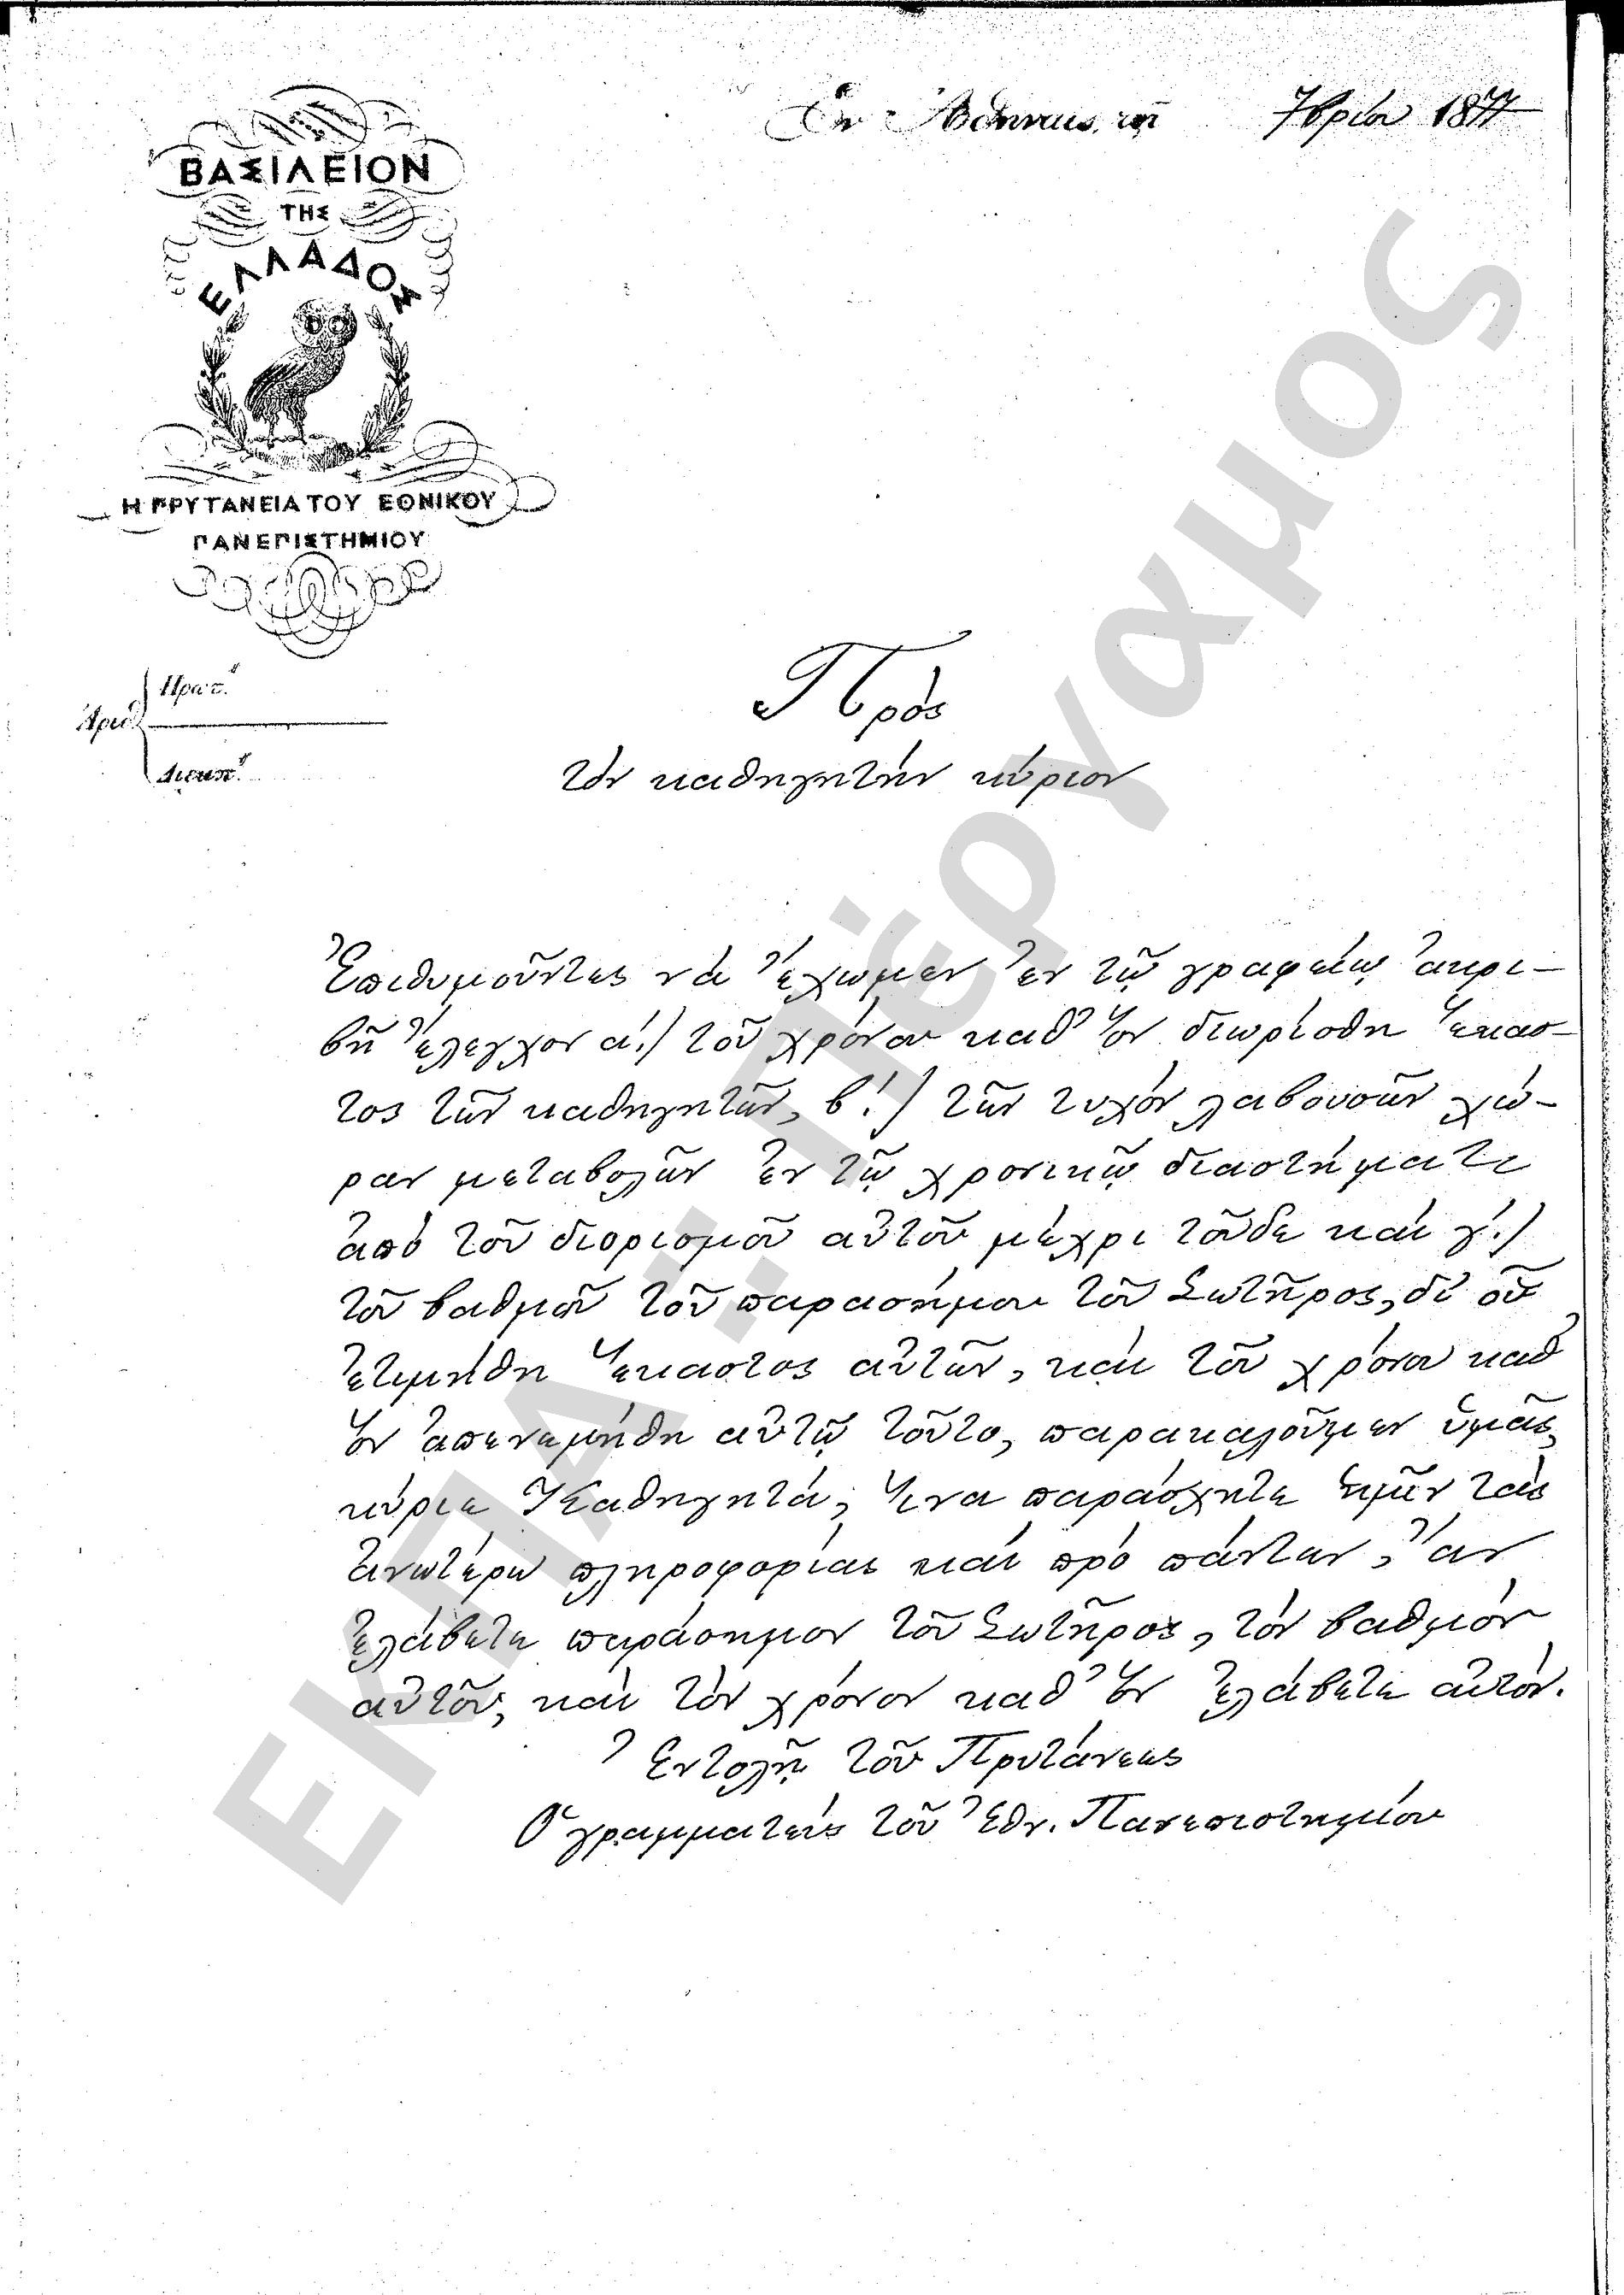 Ἐν Ἀθήναις, τῇ 7βρίου 1877
ΒΑΣΙΛΕΙΟΝ
ΤΗΣ
ΕΛΛΑΔΟΣ
Η ΠΡΥΤΑΝΕΙΑ ΤΟΥ ΕΘΝΙΚΟΥ
ΠΑΝΕΠΙΣΤΗΜΙΟΥ
Πρωτ.
Ἀριθ.
Διεκπ.
Πρὸς
τὸν καθηγητὴν κύριον
Ἐπιθυμοῦντες νὰ ἔχωμεν ἐν τῷ γραφείῳ ἀκρι-
βῆ ἔλεγχον α΄.) τοῦ χρόνου καθ' ὃν διωρίσθη ἕκασ-
τος τῶν καθηγητῶν, β΄.) τῶν τυχὸν λαβουσῶν χώ-
ραν μεταβολῶν ἐν τῷ χρονικῷ διαστήματι
ἀπὸ τοῦ διορισμοῦ αὐτοῦ μέχρι τοῦδε καὶ γ΄.)
τοῦ βαθμοῦ τοῦ παρασήμου τοῦ Σωτῆρος, δι' οὗ
ἐτιμήθη ἕκαστος αὐτῶν, καὶ τοῦ χρόνου καθ'
ὃν ἀπενεμήθη αὐτῷ τοῦτο, παρακαλοῦμεν ὑμᾶς,
κύριε Καθηγητά, ἵνα παράσχητε ἡμῖν τὰς
ἀνωτέρω πληροφορίας καὶ πρὸ πάντων, ἂν
ἐλάβετε παράσημον τοῦ Σωτῆρος, τὸν βαθμὸν
αὐτοῦ, καὶ τὸν χρόνον καθ' ὃν ἐλάβετε αὐτόν.
Ἐντολῇ τοῦ Πρυτάνεως
Ὁ γραμματεὺς τοῦ Ἐθν. Πανεπιστημίου
ΕΚΠΑ: Πέργαμος